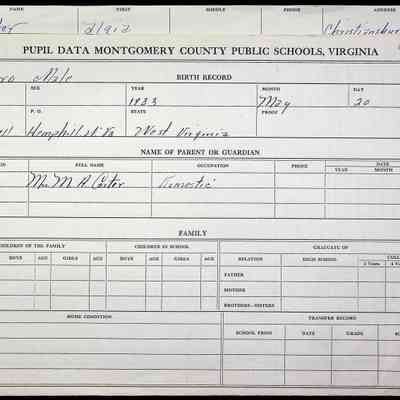 NAME FIRST SCHOOL ADDRESS
Christiansbur
PUPIL DATA MONTGOMERY COUNTY PUBLIC SCHOOLS, VIRGINIA
ro Male BIRTH RECORD
SEX YEAR MONTH DAY
1933 May 20
P. O. STATE PROOF
Hemphill W Va West Virginia
NAME OF PARENT OR GUARDIAN
FULL NAME OCCUPATION PHONE DATE
YEAR MONTH
Mrs M. A. Carter Domestic
FAMILY
CHILDREN OF THE FAMILY CHILDREN IN SCHOOL GRADUATE OF
BOYS AGE GIRLS AGE BOYS AGE GIRLS AGE RELATION HIGH SCHOOL COLL
2 Years 4 Y
FATHER
MOTHER
BROTHERS—SISTERS
HOME CONDITION TRANSFER RECORD
SCHOOL FROM DATE GRADE